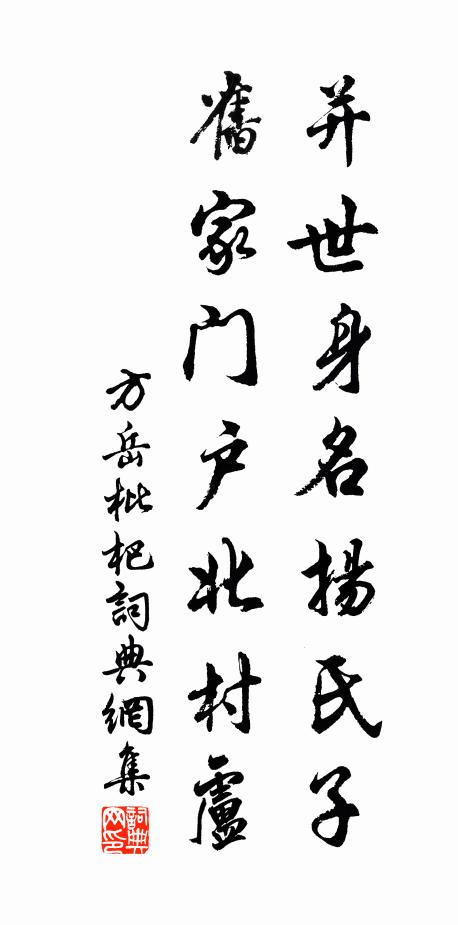 并世身名揚氏子
舊家門户北村廬
方岳枇杷詞典網集
詞典网印